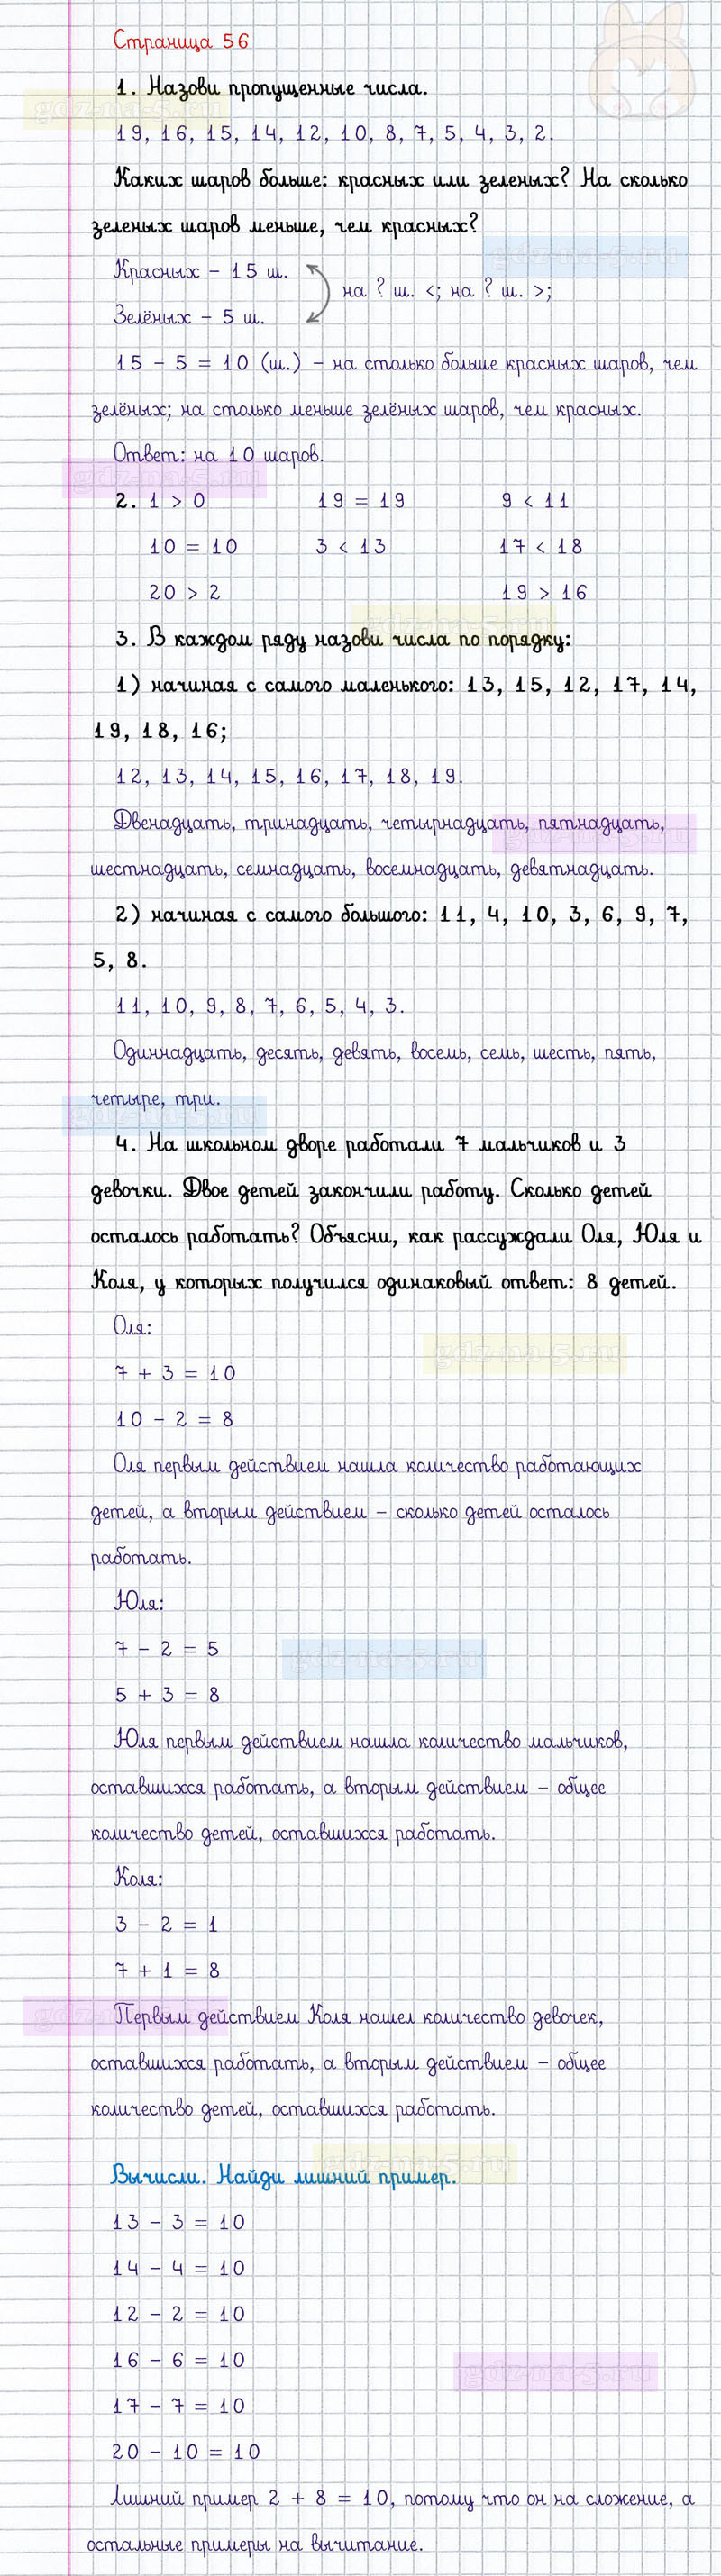 Страница 56
1. Назови пропущенные числа.
19, 16, 15, 14, 12, 10, 8, 7, 5, 4, 3, 2.
Каких шаров больше: красных или зеленых? На сколько
зеленых шаров меньше, чем красных?
Красных – 15 ш.
на ? ш. <; на ? ш. >;
Зелёных – 5 ш.
15 – 5 = 10 (ш.) – на столько больше красных шаров, чем
зелёных; на столько меньше зелёных шаров, чем красных.
Ответ: на 10 шаров.
2. 1 > 0 19 = 19 9 < 11
10 = 10 3 < 13 17 < 18
20 > 2 19 > 16
3. В каждом ряду назови числа по порядку:
1) начиная с самого маленького: 13, 15, 12, 17, 14,
19, 18, 16;
12, 13, 14, 15, 16, 17, 18, 19.
Двенадцать, тринадцать, четырнадцать, пятнадцать,
шестнадцать, семнадцать, восемнадцать, девятнадцать.
2) начиная с самого большого: 11, 4, 10, 3, 6, 9, 7,
5, 8.
11, 10, 9, 8, 7, 6, 5, 4, 3.
Одиннадцать, десять, девять, восемь, семь, шесть, пять,
четыре, три.
4. На школьном дворе работали 7 мальчиков и 3
девочки. Двое детей закончили работу. Сколько детей
осталось работать? Объясни, как рассуждали Оля, Юля и
Коля, у которых получился одинаковый ответ: 8 детей.
Оля:
7 + 3 = 10
10 – 2 = 8
Оля первым действием нашла количество работающих
детей, а вторым действием – сколько детей осталось
работать.
Юля:
7 – 2 = 5
gdz-na-5.ru
5 + 3 = 8
Юля первым действием нашла количество мальчиков,
оставшихся работать, а вторым действием – общее
количество детей, оставшихся работать.
Коля:
3 – 2 = 1
7 + 1 = 8
Первым действием Коля нашел количество девочек,
оставшихся работать, а вторым действием – общее
количество детей, оставшихся работать.
Вычисли. Найди лишний пример.
13 – 3 = 10
14 – 4 = 10
12 – 2 = 10
16 – 6 = 10
gdz-na-5.ru
17 – 7 = 10
20 – 10 = 10
Лишний пример 2 + 8 = 10, потому что он на сложение, а
остальные примеры на вычитание.